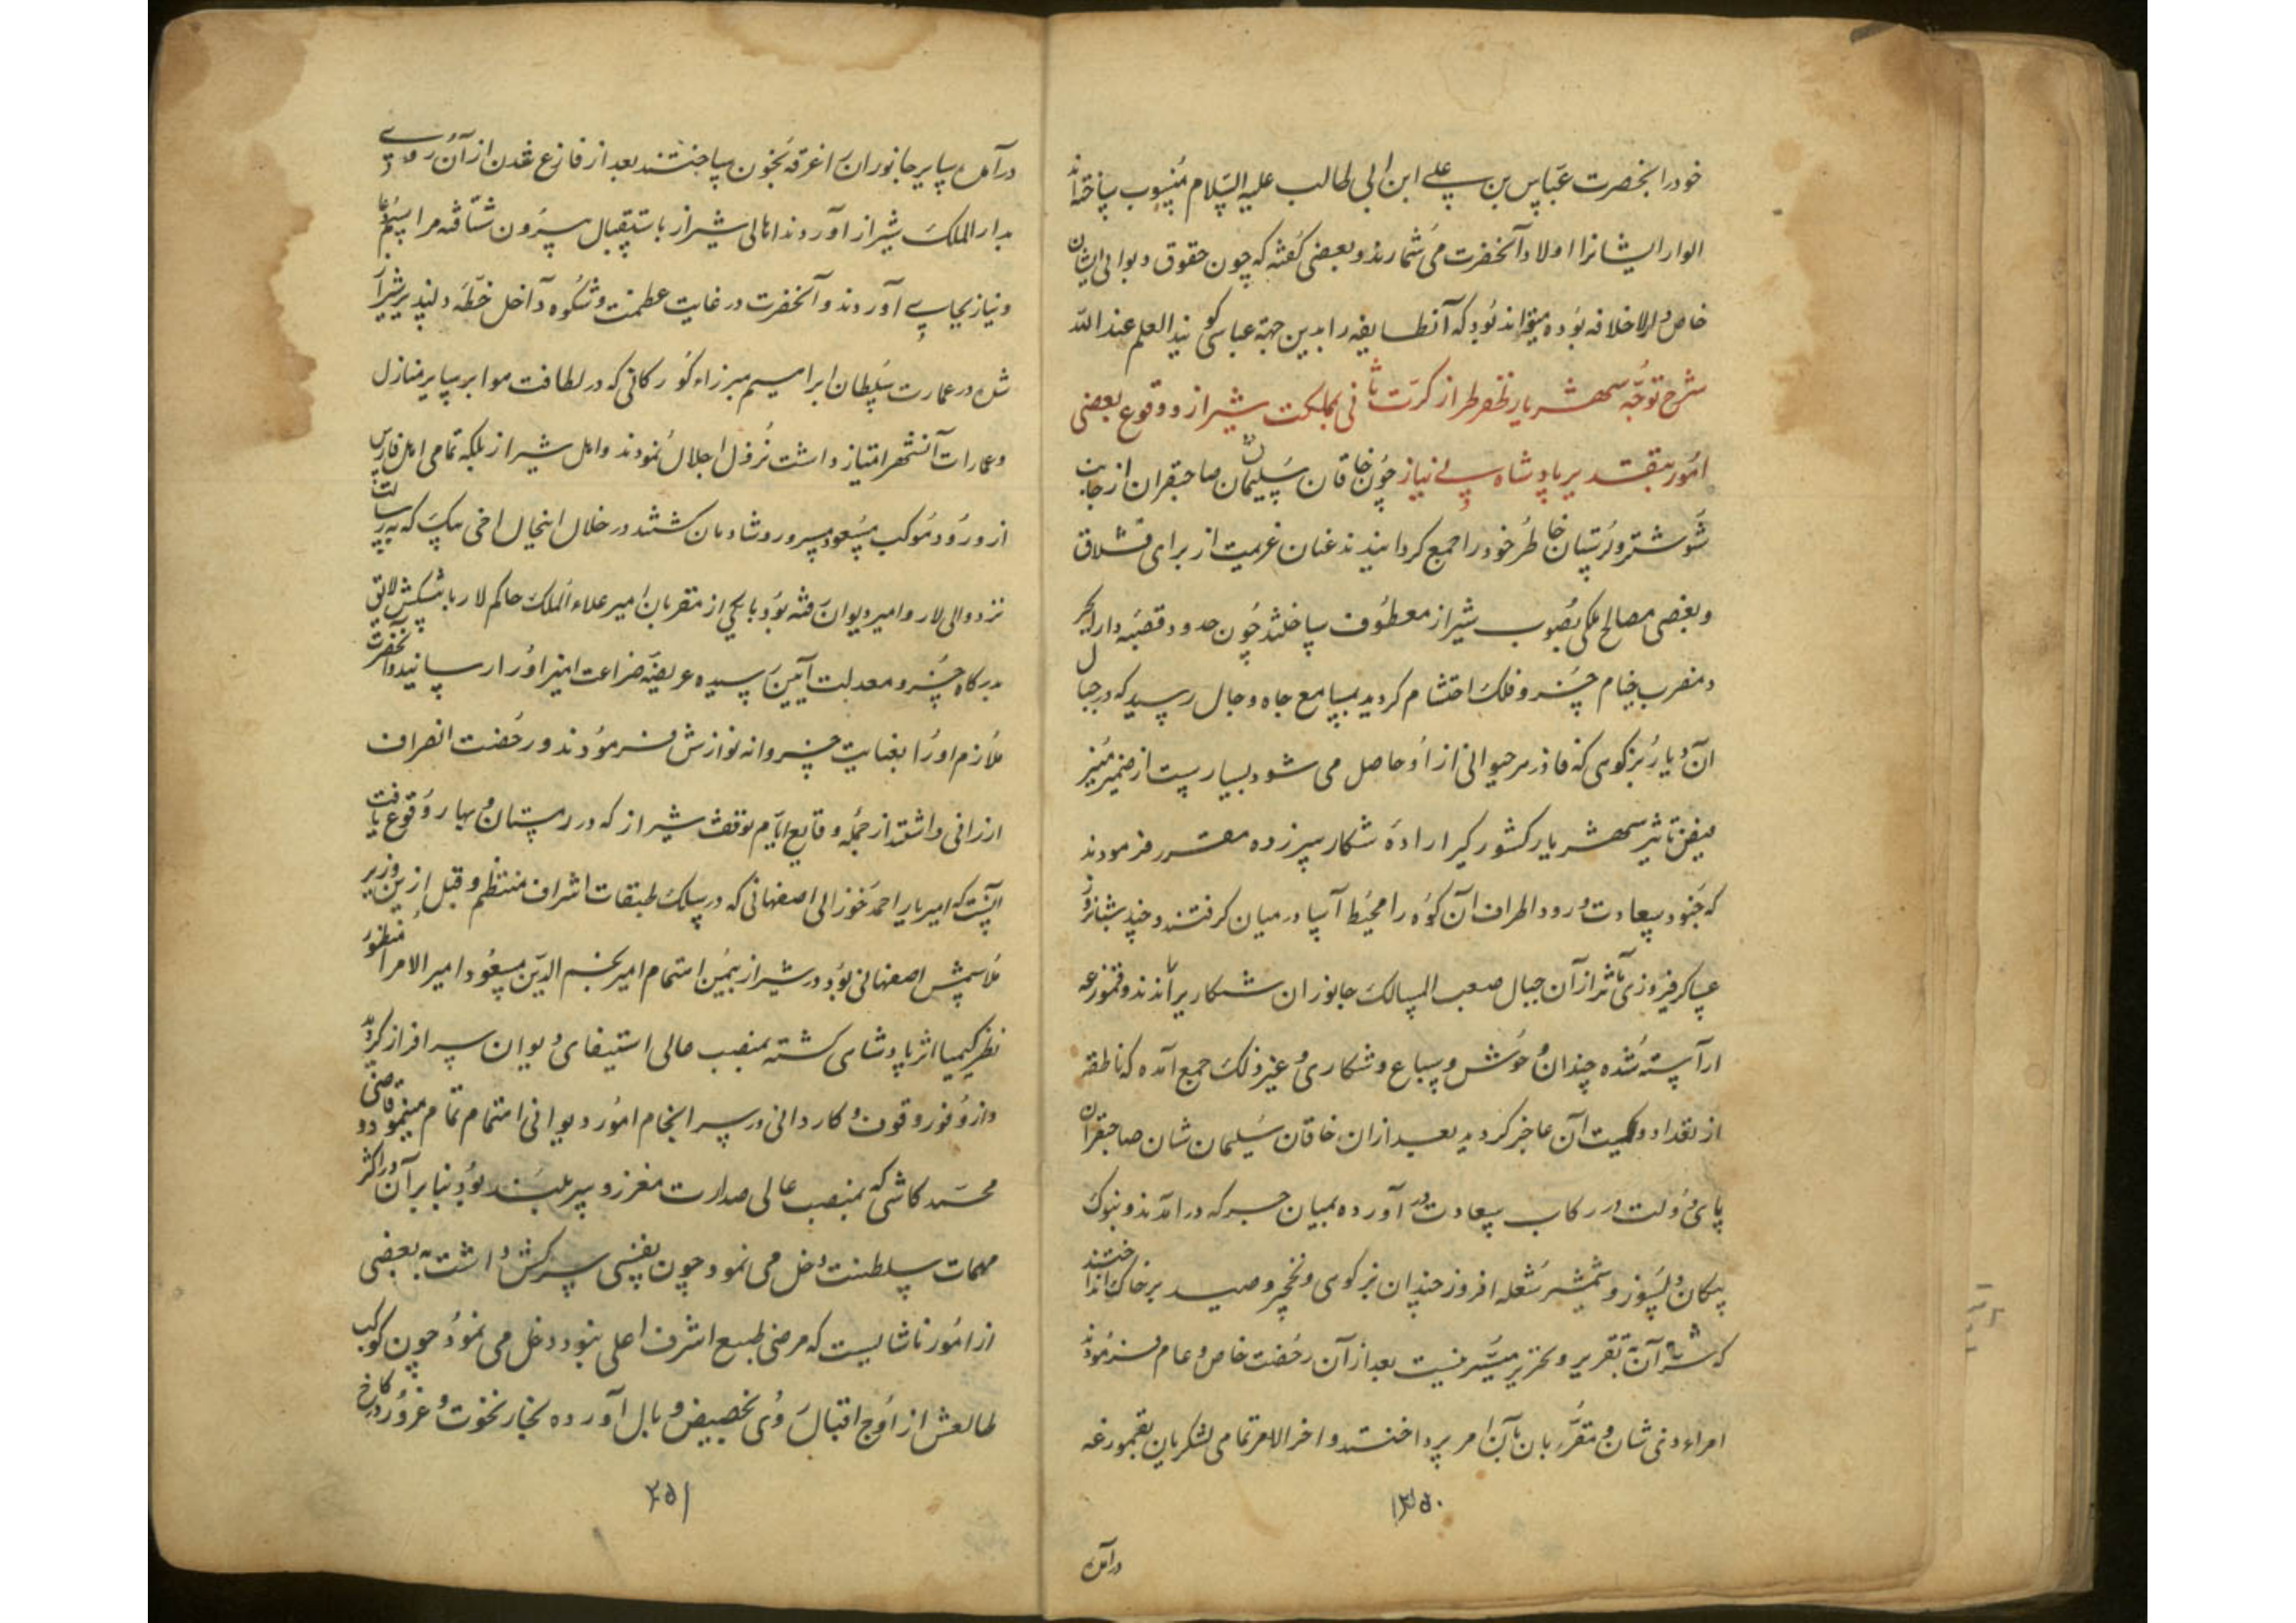 خود را بحضرت عباس بن علی ابن ابی طالب علیه السلام منسوب ساخته‌اند
الوار ایشانرا اولاد آنحضرت می شمارند و بعضی گفته که چون حقوق دیوانی ایشان
خاص دار الخلافه بوده میتواند بود که آنطایفه را بدین جهة عباسی گویند العلم عند الله
شرح توجه شهریار ظفر طراز کرت ثانی بمملکت شیراز و وقوع بعضی
امور بتقدیر پادشاه بی نیاز چون خاقان سلیمان شان صاحبقران از جانب
شوشتر و لرستان خاطر خود را جمع گردانیدند عنان عزیمت از برای قشلاق
و بعضی مصالح ملکی بصوب شیراز معطوف ساختند چون حدود قصبه دارابجر
د مضرب خیام خسرو فلک احتشام گردید بمسامع جاه و جلال رسید که در جبال
آن دیار بز کوهی که فاذزهر حیوانی از او حاصل می شود بسیارست از ضمیر منیر
فیض تاثیر شهریار کشور گیر اراده شکار سرزده مقرر فرمودند
که جنود سعادت ورود اطراف آن کوه را محیط آسا در میان گرفتند و چند شبانروز
عساکر فیروزی مآثر از آن جبال صعب المسالک جانوران شکاری براندند و قمورغه
آراسته شده چندان وحوش و سباع و شکاری و غیر ذلک جمع آمده که ناطقه
از تعداد و کمیت آن عاجز گردید بعد از ان خاقان سلیمان شان صاحبقران
پای دولت در رکاب سعادت در آورده بمیان جرگه در آمدند و بنوک
پیکان دلسوز و شمشیر شعله افروز چندان بز کوهی و نخچیر و صید بر خاک انداختند
که شرح آن بتقریر و تحریر میسر نیست بعد از آن رخصت خاص و عام فرمودند
امراء ذی شان و مقربان بآن امر پرداختند و اخر الامر تمامی لشکریان بقمورغه
۳۵۰
درآمده
درآمده سایر جانوران را غرقه بخون ساختند بعد از فارغ شدن از آن روی
بدار الملک شیراز آوردند اهالی شیراز باستقبال بیرون شتافته مراسم دعا
و نیاز بجای آوردند و آنحضرت در غایت عظمت و شکوه داخل خطه دلپذیر شیراز
شده در عمارت سلطان ابراهیم میرزاء گورکانی که در لطافت هوا بر سایر منازل
و عمارات آنشهر امتیاز داشت نزول اجلال نمودند و اهل شیراز بلکه تمامی اهل فارس
از ورود موکب مسعود مسرور و شادمان گشتند در خلال اینحال اخی بیک که برسالت
نزد والی لار و امیر دیوان رفته بود با یکی از مقربان امیر علاء الملک حاکم لار با پیشکش لایق
بدرگاه خسرو معدلت آیین رسیده عریضه ضراعت امیز او را رسانید و آنحضرت
ملازم او را بعنایت خسروانه نوازش فرمودند و رخصت انصراف
ارزانی داشتند از جمله وقایع ایام توقف شیراز که در زمستان و بهار وقوع یافت
آنست که امیر یار احمد خوزانی اصفهانی که در سلک طبقات اشراف منتظم و قبل ازین وزیر
ملا شمس اصفهانی بود در شیراز بیمن اهتمام امیر نجم الدین مسعود امیر الامرا منظور
نظر کیمیا اثر پادشاهی گشته بمنصب عالی استیفای دیوان سرافراز گردید
و از وفور وقوف و کاردانی در سر انجام امور دیوانی اهتمام تمام مینمود و قاضی
محمد کاشی که بمنصب عالی صدارت معزز و سربلند بود بنا بر آن در اکثر
مهمات سلطنت دخل می نمود چون نفسی سرکش داشت به بعضی
از امور ناشایست که مرضی طبع اشرف اعلی نبود دخل می نمود چون کوکب
طالعش از اوج اقبال روی بحضیض وبال آورده بخار نخوت و غرور در کاخ
۳۵۱